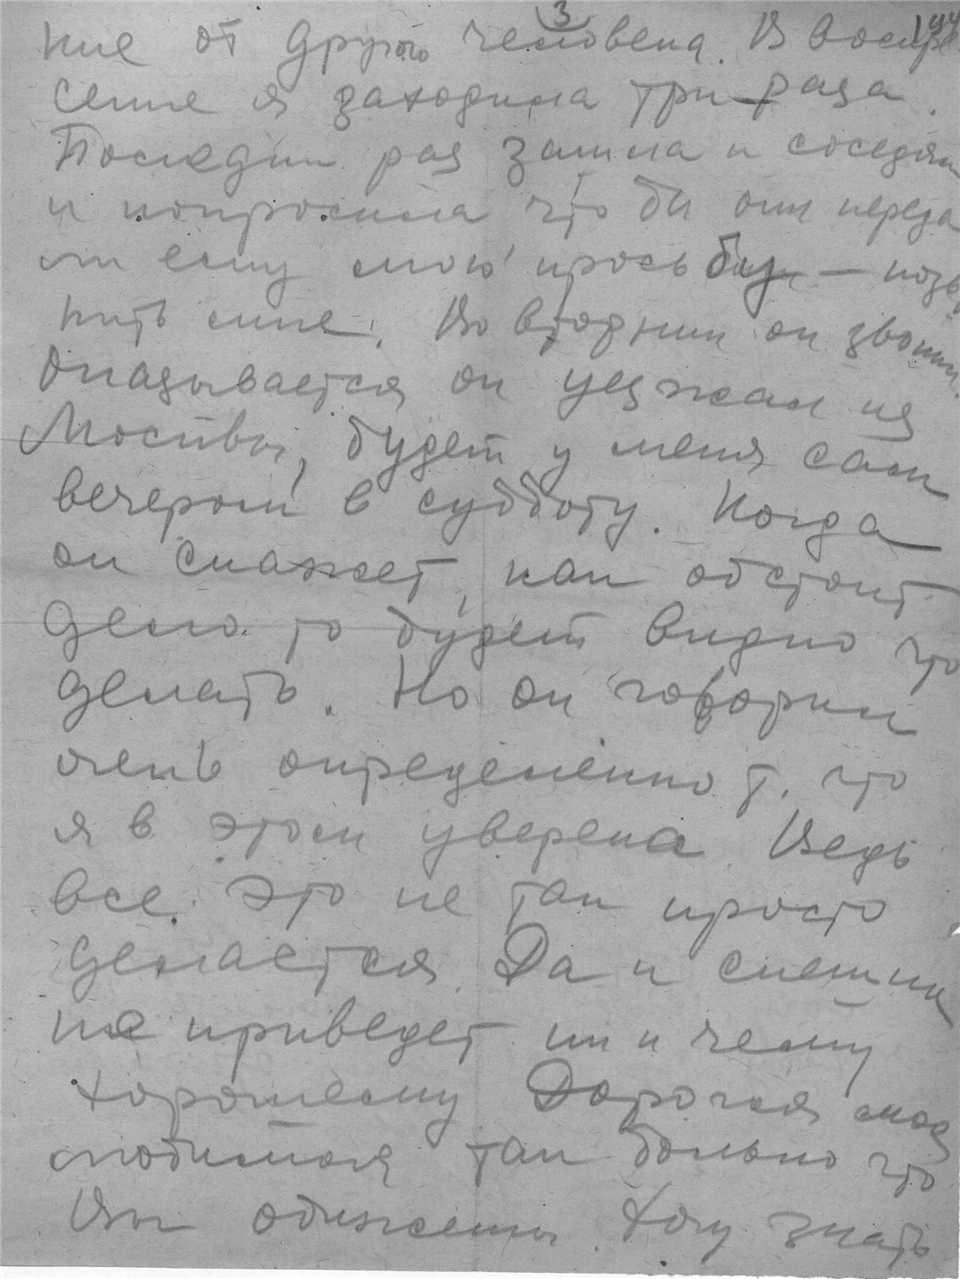 3
ние от другого человека. В воскре
сение я заходила три раза.
Последний раз зашла к соседям
и попросила что бы они переда
ли ему мою просьбу — позво
нить мне. Во вторник он звонил.
Оказывается он уезжал из
Москвы, будет у меня сам
вечером в субботу. Когда
он скажет, как обстоит
дело то будет видно что
делать. Но он говорил
очень определенно т. что
я в этом уверена. Ведь
все это не так просто
делается. Да и спешка
не приведет ни к чему
хорошему Дорогая моя
любимая так больно что
Вы обижены. Хочу знать